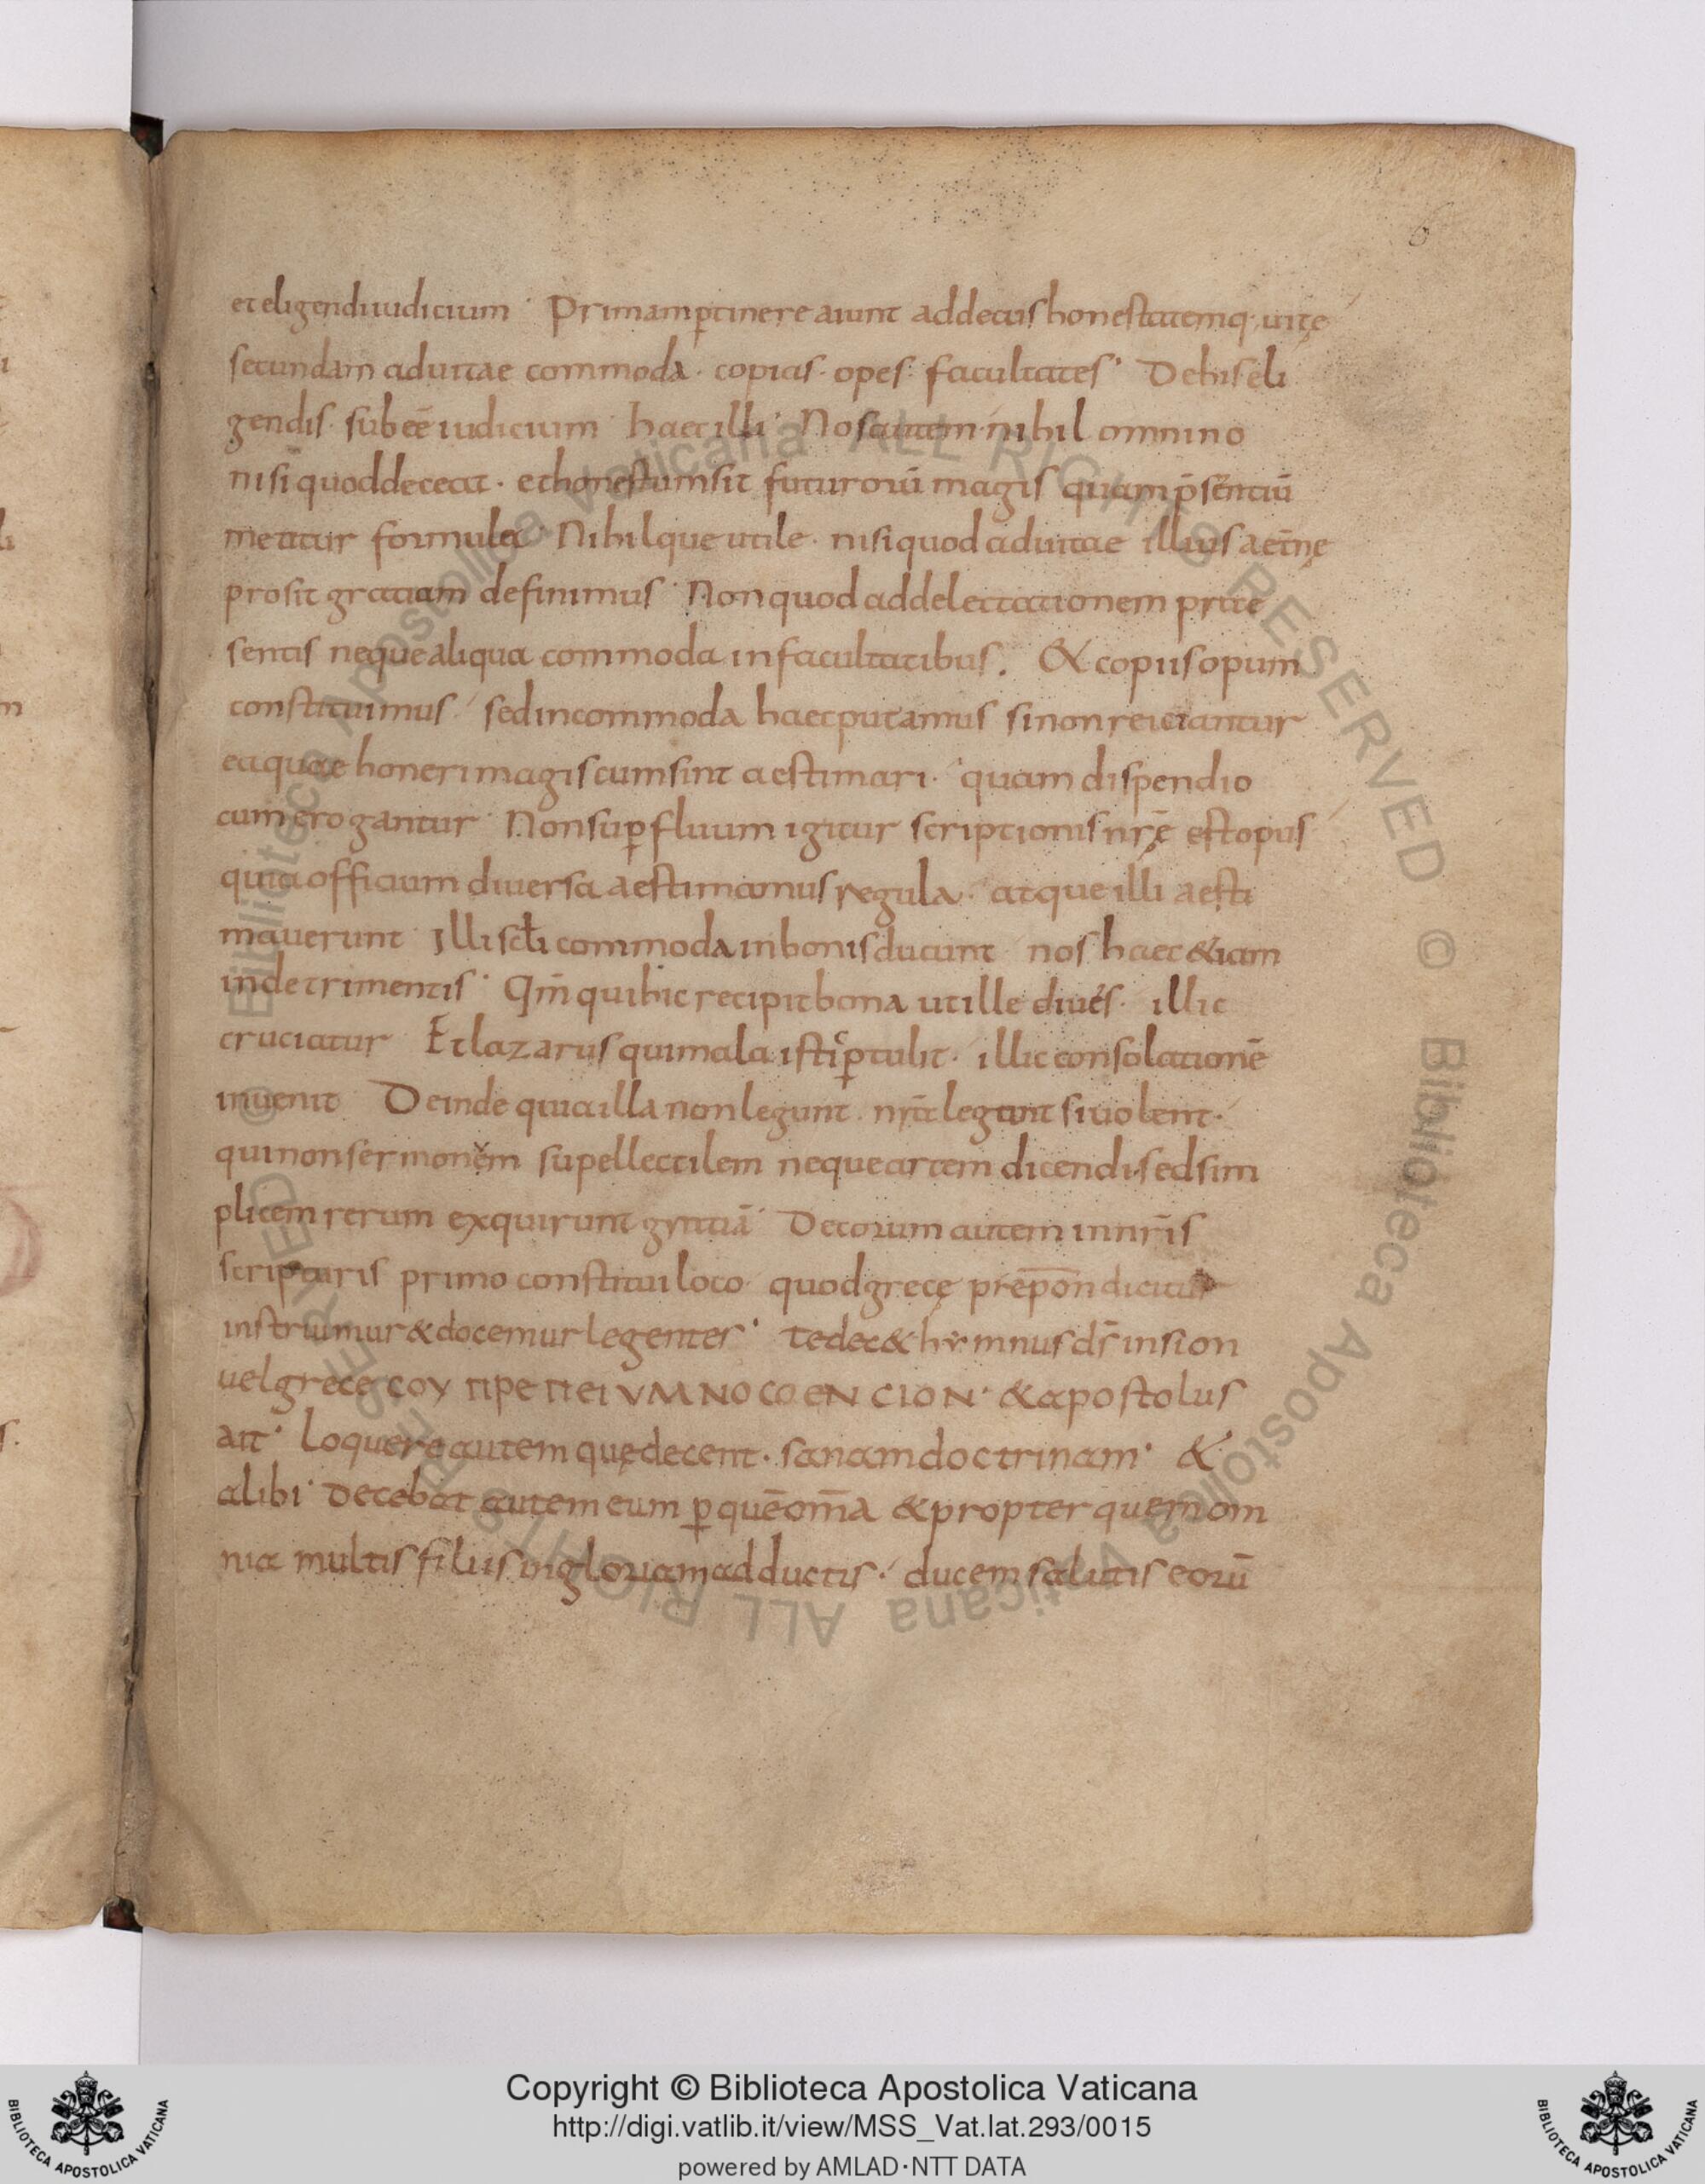 et eligendi iudicium · Primam ꝑtinere aiunt ad decus honestatemq; uitę
secundam ad uitae commoda · copias · opes · facultates · De his eli
gendis · subeē iudicium · haec illi · Nos autem nihil omnino
nisi quod deceat · et honestum sit futurorū magis quam p̄sentiū
metitur formula · Nihilque utile · nisi quod ad uitae illius aet̄nę
prosit gratiam definimus · Non quod ad delectationem prae
sentis neque aliqua commoda in facultatibus . & copiis opum
constituimus · sed incommoda haec putamus si non reiciantur
ea quae honeri magis cum sint aestimari · quam dispendio
cum erogantur · Non suꝑfluum igitur scriptionis nr̄ę est opus
quia officium diuersa aestimamus regula · atque illi aesti
mauerunt · Illi sc̄li commoda in bonis ducunt · nos haec &iam
in detrimentis · Qm̄ qui hic recipit bona ut ille diues · illic
cruciatur · Et lazarus qui mala istic ꝑtulit · illic consolationē
inuenit · Deinde qui illa non legunt · nr̄a legunt si uolent ·
qui non sermonem supellectilem neque artem dicendi sed sim
plicem rerum exquirunt gr̄atiā · Decorum autem in nr̄is
scripturis primo constitui loco · quod grece prepon dicitur
instruimur & docemur legentes · te dec& hymnus ds̄ in sion
uel grece COY ΠΡΕΠΕΙ ΥΜΝΟC Ο EN CION · & apostolus
ait · loquere autem quę decent · sanam doctrinam · &
alibi · Decebat autem eum ꝑ quē om̄a & propter quem om
nia multis filiis in gloriam adductis · ducem salutis eorū
6
Copyright © Biblioteca Apostolica Vaticana
http://digi.vatlib.it/view/MSS_Vat.lat.293/0015
powered by AMLAD·NTT DATA
BIBLIOTECA APOSTOLICA VATICANA
BIBLIOTECA APOSTOLICA VATICANA
© Biblioteca Apostolica Vaticana ALL RIGHTS RESERVED © Biblioteca Apostolica Vaticana ALL RIGHTS RESERVED